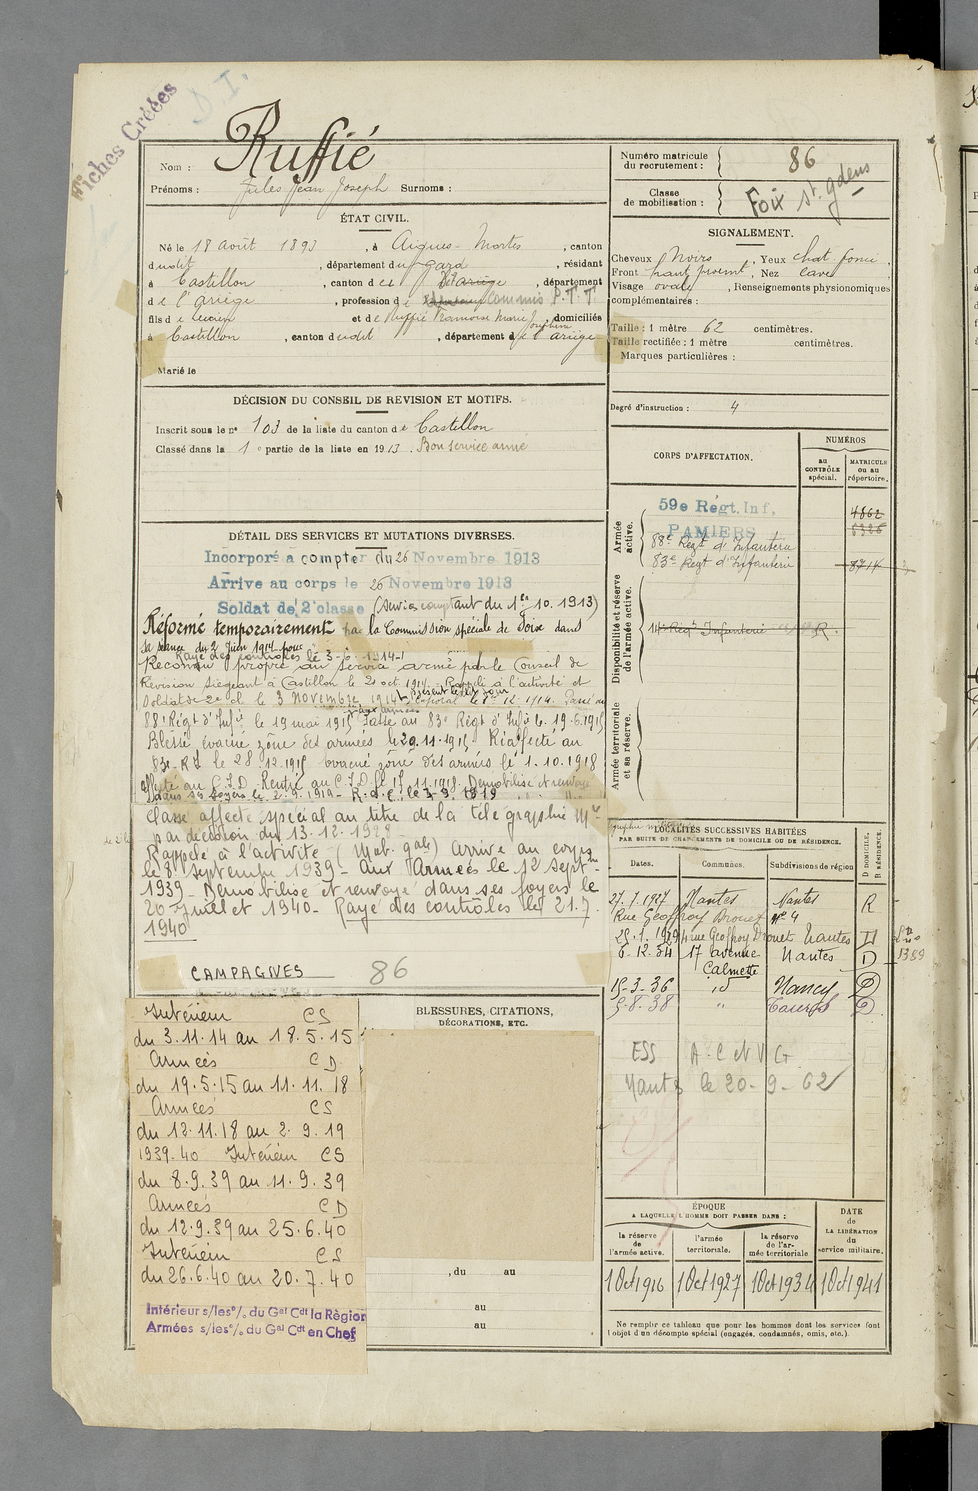 Fiches Créées
D. I.
Nom : Ruffié
Prénoms : Jules Jean Joseph Surnoms :
ÉTAT CIVIL.
Né le 18 Août 1893, à Aigues-Mortes, canton
dudit, département du gard, résidant
à Castillon, canton de, département
de l'ariège, profession de Commis P.T.T.
fils de Lucien et de Ruffié Joséphine, domiciliés
à Castillon, canton dudit, département de l'ariège
Marié le
DÉCISION DU CONSEIL DE REVISION ET MOTIFS.
Inscrit sous le n° 103 de la liste du canton de Castillon
Classé dans la 1e partie de la liste en 1913. Bon service armé
DÉTAIL DES SERVICES ET MUTATIONS DIVERSES.
Incorporé à compter du 26 Novembre 1913
Arrivé au corps le 26 Novembre 1913
Soldat de 2e classe (service comptant du 1er 10. 1913)
Réformé temporairement par la Commission spéciale de Foix dans
sa séance du 2 Juin 1914 pour
Rayé des contrôles le 3-6-1914
Reconnu propre au service armé par le Conseil de
Révision siégeant à Castillon le 2 oct 1914. Rappelé à l'activité et
Soldat de 2e cl. le 3 Novembre 1914. Caporal le 1er 12 1914. Passé au
88e Régt d'Infie le 19 mai 1915 Passé au 83e Régt d'Infie le 19.6.1915
Blessé, évacué zône des armées le 29.11.1915 Réaffecté au
83e R.I. le 28.12.1915 évacué zône des armées le 1.10.1918
au C.I.D. Rentré au C.I.D. le 11.1918. Démobilisé et renvoyé
dans ses foyers le 2.9.1919 - R.d.C. le 3-9-1919
Classé affecté spécial au titre de la télégraphie Mre
par décision du 13.12.1928
Rappelé à l'activité (Mob. gale) Arrivé au corps
le 8 septembre 1939 - Aux Armées le 12 Septbre
1939 - Démobilisé et renvoyé dans ses foyers le
20 Juillet 1940 - Rayé des contrôles le 21.7.
1940
CAMPAGNES 86
Intérieur CS
du 3.11.14 au 18.5.15
Armées CD
du 19.5.15 au 11.11.18
Armées CS
du 12.11.18 au 2.9.19
1939-40 Intérieur CS
du 8.9.39 au 11.9.39
Armées CD
du 12.9.39 au 25.6.40
Intérieur CS
du 26.6.40 au 20.7.40
Intérieur s/les % du Gal Cdt la Région
Armées s/les % du Gal Cdt en Chef
BLESSURES, CITATIONS,
DÉCORATIONS, ETC.
, du au
au
au
Numéro matricule
du recrutement : 86
Classe
de mobilisation : Foix St. gdens
SIGNALEMENT.
Cheveux Noirs, Yeux chat. foncé,
Front haut proémt, Nez cave
Visage ovale, Renseignements physionomiques
complémentaires :
Taille : 1 mètre 62 centimètres.
Taille rectifiée : 1 mètre centimètres.
Marques particulières :
Degré d'instruction : 4
CORPS D'AFFECTATION.
NUMÉROS
AU CONTRÔLE spécial.
MATRICULE ou au répertoire.
Armée active.
59e Régt. Inf.
PAMIERS
4862
88e Régt d'Infanterie
83e Régt d'Infanterie
Disponibilité et réserve de l'armée active.
Régt Infanterie R.
Armée territoriale et sa réserve.
LOCALITÉS SUCCESSIVES HABITÉES
PAR SUITE DE CHANGEMENTS DE DOMICILE OU DE RÉSIDENCE.
Dates. Communes. Subdivisions de région
D DOMICILE. R RÉSIDENCE.
27.7.1927 Nantes Nantes R
Rue Geoffroy Drouet N° 4
25.1.1929 4 rue Geoffroy Drouet Nantes D
6.12.34 17 avenue Nantes D
Calmette
15-3-36 id Nancy D
5.8.38 " D
ESS A.C et V G
Nantes le 20-9-62
ÉPOQUE
A LAQUELLE L'HOMME DOIT PASSER DANS :
la réserve de l'armée active.
l'armée territoriale.
la réserve de l'armée territoriale
DATE de LA LIBÉRATION du service militaire.
1 Oct 1916 1 Oct 1927 1 Oct 1934 1 Oct 1941
Ne remplir ce tableau que pour les hommes dont les services font
l'objet d'un décompte spécial (engagés, condamnés, omis, etc.).